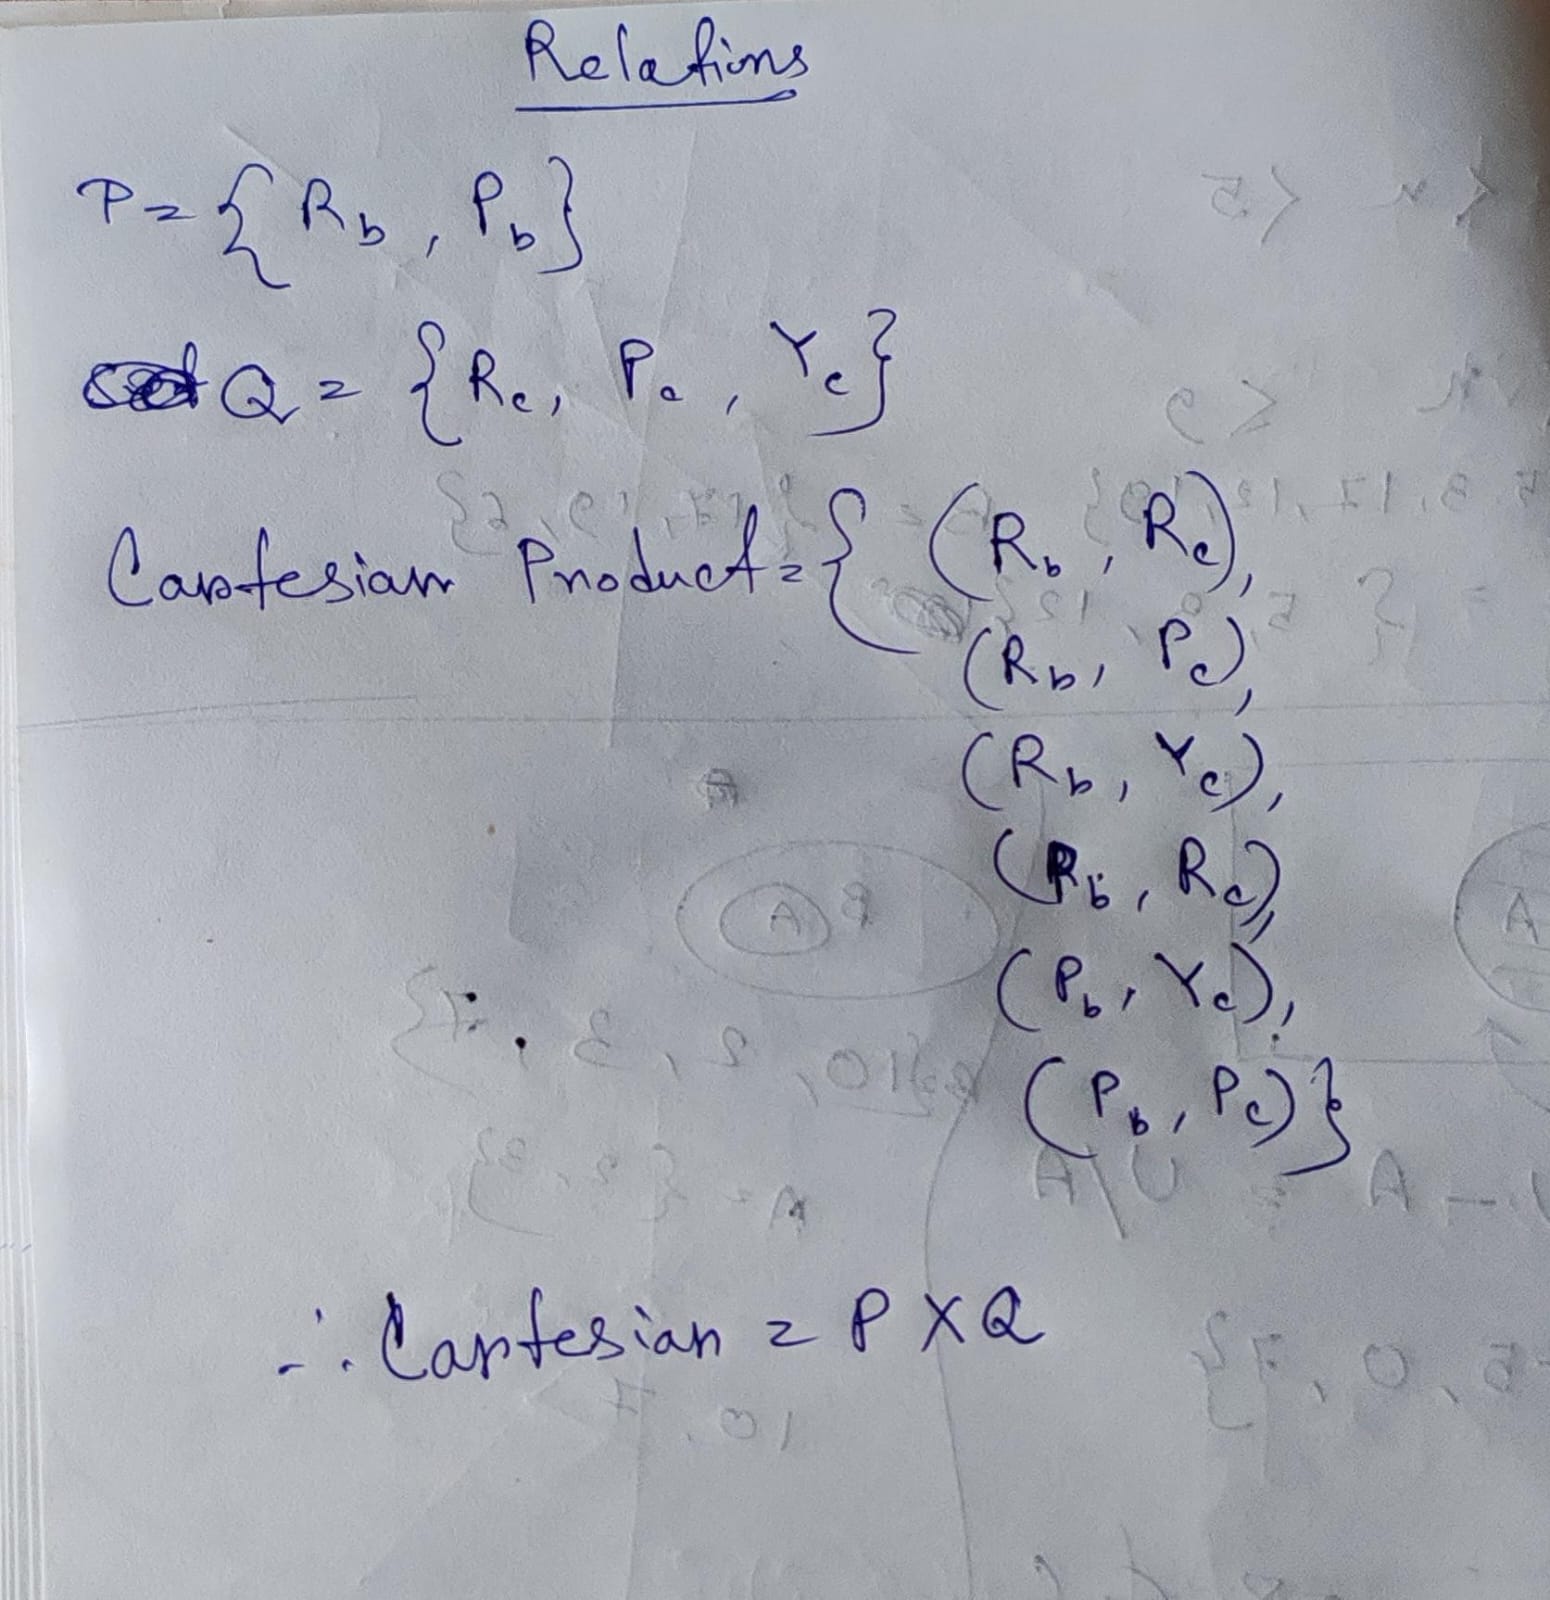 Relations
P = { R_b , P_b }
Q = { R_c , P_c , Y_c }
Cartesian Product = { (R_b , R_c),
(R_b , P_c),
(R_b , Y_c),
(P_b , R_c),
(P_b , Y_c),
(P_b , P_c) }
∴ Cartesian = P X Q